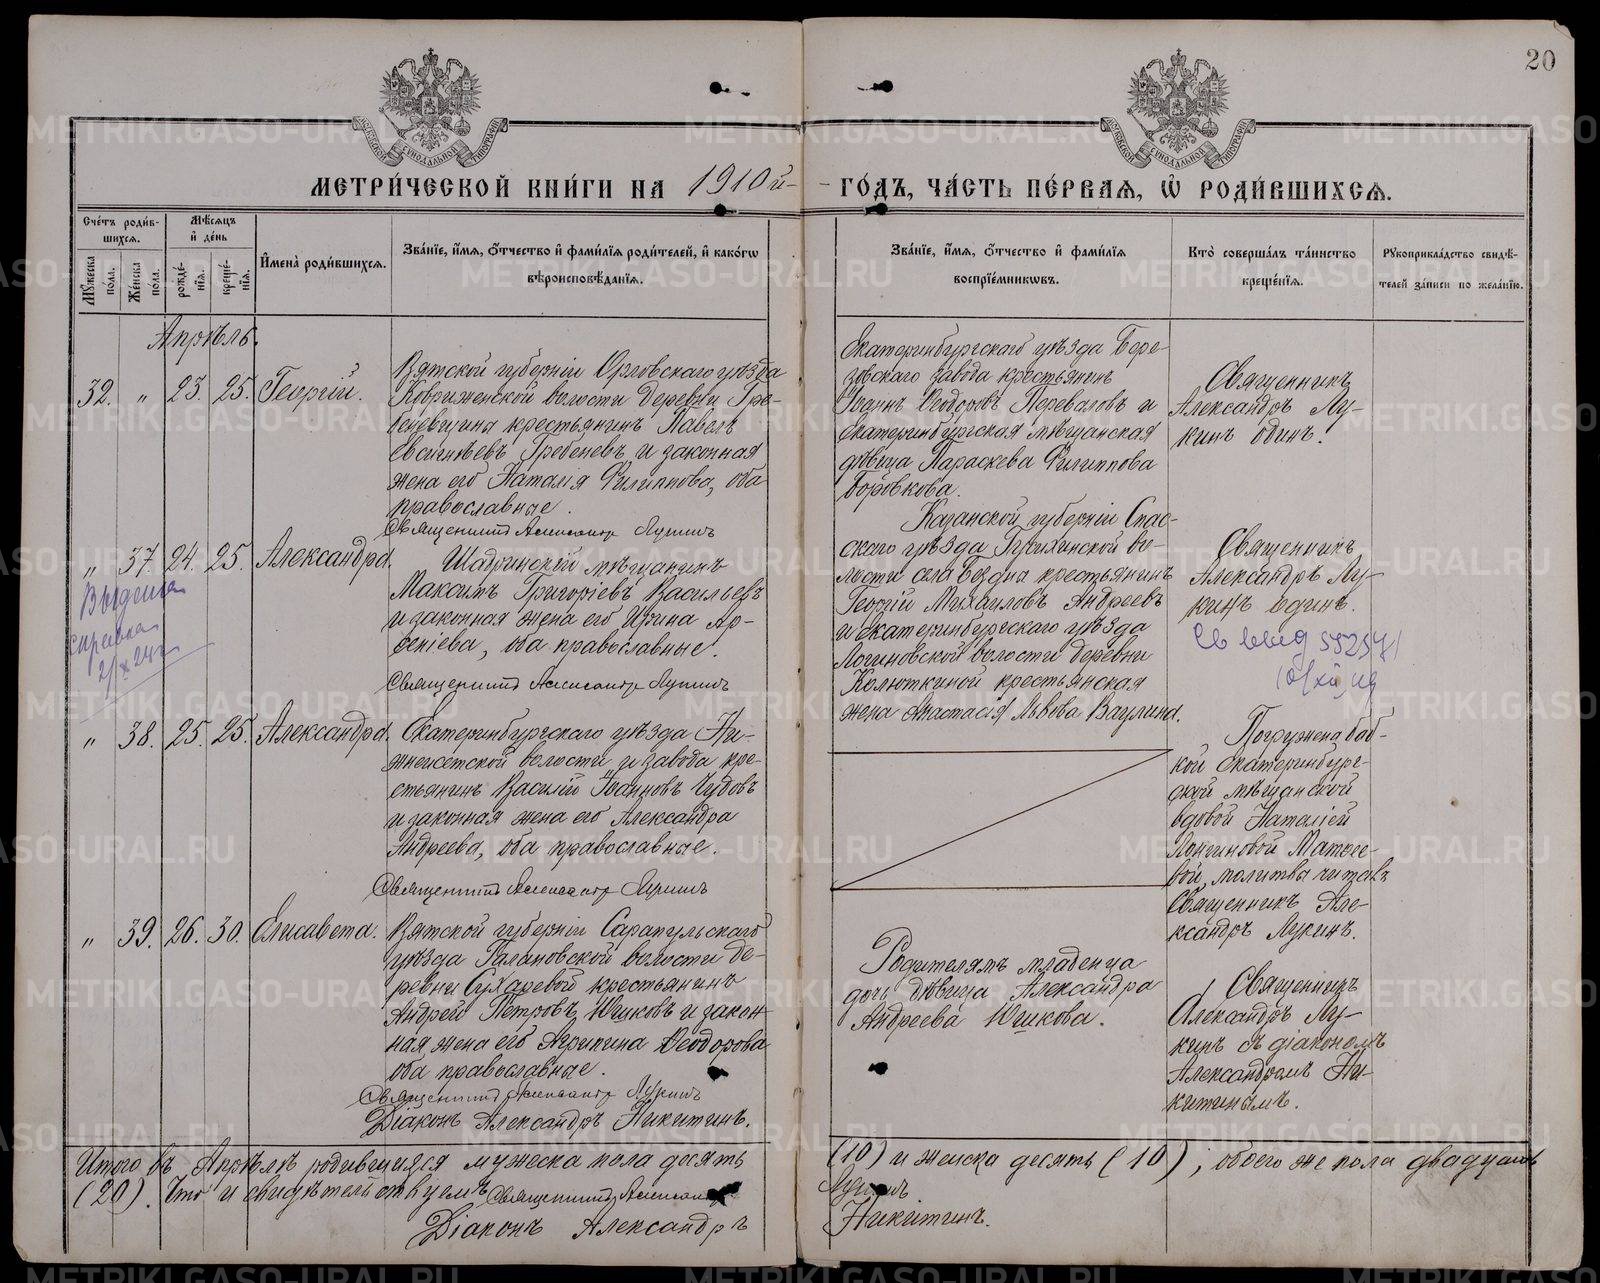 20
МЕТРИ́ЧЕСКОЙ КНИ́ГИ НА 1910й
ГО́ДЪ, ЧА́СТЬ ПЕ́РВАѦ, Ѡ҆ РОДИ́ВШИХСѦ.
Сче́тъ роди́в-
шихсѧ.
Мꙋ́жеска по́ла.
Же́нска по́ла.
Мѣ́сѧцъ и҆ де́нь
рожде́-
нїѧ.
креще́-
нїѧ.
И҆мена̀ роди́вшихсѧ.
Зва́нїе, и҆́мѧ, ѻ҆́тчество и҆ фами́лїѧ роди́телей, и҆ како́гѡ
вѣроисповѣ́данїѧ.
Зва́нїе, и҆́мѧ, ѻ҆́тчество и҆ фами́лїѧ
воспрїе́мникѡвъ.
Кто̀ соверша́лъ та́инство
креще́нїѧ.
Рꙋкоприкла́дство свидѣ́-
телей за́писи по жела́нїю.
Апрѣль.
32. " 23. 25. Георгій.
Вятской губерніи Орловскаго уѣзда
Ковриженской волости деревни Гре-
беневщины крестьянинъ Павелъ
Евѳиміевъ Гребеневъ и законная
жена его Наталія Филиппова, оба
православные.
Священникъ Александръ Лукинъ
Екатеринбургскаго уѣзда Бере-
зовскаго завода крестьянинъ
Іоаннъ Ѳеодоровъ Переваловъ и
Екатеринбургская мѣщанская
дѣвица Параскева Филиппова
Боровкова.
Священникъ
Александръ Лу-
кинъ одинъ.
" 37. 24. 25. Александра.
Выдана
справка
2/X 24 г
Шадринскій мѣщанинъ
Максимъ Григоріевъ Васильевъ
и законная жена его Ирина Ар-
сеніева, оба православные.
Священникъ Александръ Лукинъ
Казанской губерніи Спас-
скаго уѣзда во-
лости села Бездна крестьянинъ
Георгій Михаиловъ Андреевъ
и Екатеринбургскаго уѣзда
Логиновской волости деревни
Колюткиной крестьянская
жена Анастасія Львова Ваулина.
Священникъ
Александръ Лу-
кинъ одинъ.
" 38. 25. 25. Александра.
Екатеринбургскаго уѣзда Ни-
жнеисетской волости и завода кре-
стьянинъ Василій Іоанновъ Чудовъ
и законная жена его Александра
Андреева, оба православные.
Священникъ Александръ Лукинъ
Погружена баб-
кой Екатеринбург-
ской мѣщанской
вдовой Наталіей
Лонгиновой Матвее-
вой, молитва читавъ
Священникъ Але-
ксандръ Лукинъ.
" 39. 26. 30. Елисавета.
Вятской губерніи Сарапульскаго
уѣзда Галановской волости де-
ревни Сухаревой крестьянинъ
Андрей Петровъ Юшковъ и закон-
ная жена его Агрипина Ѳеодорова
оба православные.
Священникъ Александръ Лукинъ
Діаконъ Александръ Никитинъ.
Родителямъ младенца
дочь дѣвица Александра
Андреева Юшкова.
Священникъ
Александръ Лу-
кинъ съ діакономъ
Александромъ Ни-
китинымъ.
Итого въ Апрѣлѣ родившихся мужеска пола десять (10) и женска десять (10), обоего же пола двадцать
(20). Что и свидѣтельствуемъ Священникъ Александръ Лукинъ
Діаконъ Александръ Никитинъ.
METRIKI.GASO-URAL.RU